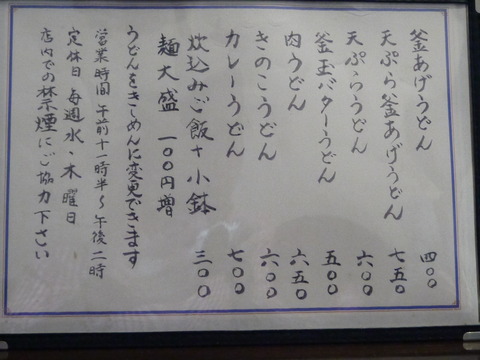 釜あげうどん 四〇〇
天ぷら釜あげうどん 七五〇
天ぷらうどん 六〇〇
釜玉バターうどん 五〇〇
肉うどん 六五〇
きのこうどん 六〇〇
カレーうどん 七〇〇
炊込みご飯+小鉢 三〇〇
麺大盛 一〇〇円増
うどんをきしめんに変更できます
営業時間 午前十一時半〜午後二時
定休日 毎週 水・木 曜日
店内での禁煙にご協力下さい